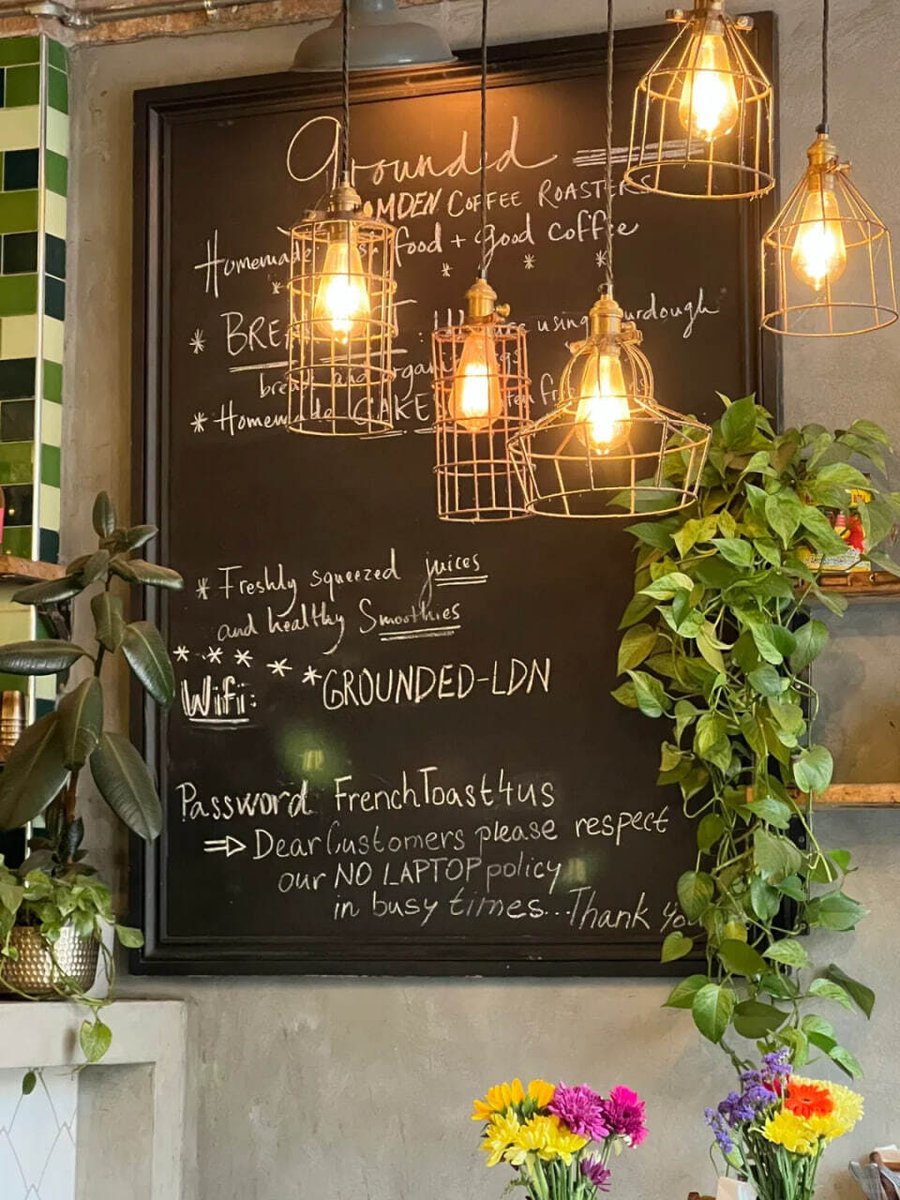 Grounded
COFFEE ROASTERS
Homemade food + good coffee
* * * *
* using sourdough
and organic
* Homemade CAKE
* Freshly squeezed juices
and healthy Smoothies
* * * * *
Wifi: GROUNDED-LDN
Password FrenchToast4us
⇒ Dear Customers please respect
our NO LAPTOP policy
in busy times... Thank